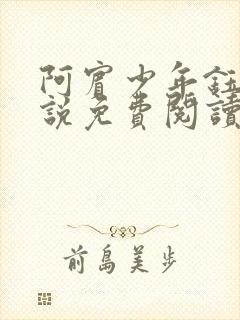 阿賓少年鈺
說免費閱讀
前島美步